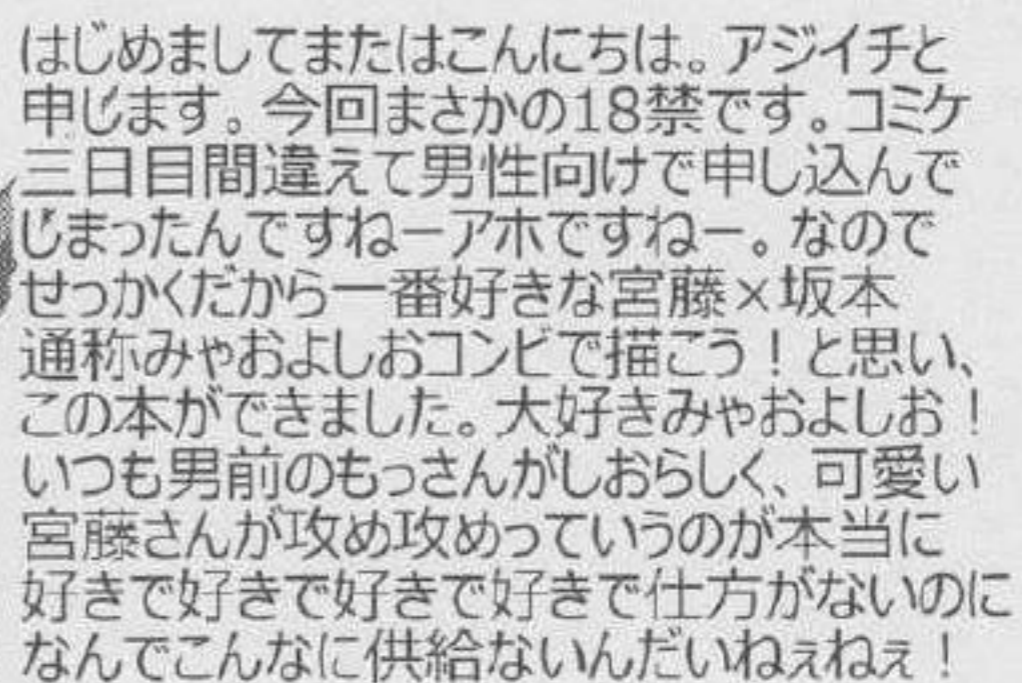 はじめましてまたはこんにちは。アジイチと
申します。今回まさかの18禁です。コミケ
三日目間違えて男性向けで申し込んで
しまったんですねーアホですねー。なので
せっかくだから一番好きな宮藤×坂本
通称みやおよしおコンビで描こう！と思い、
この本ができました。大好きみやおよしお！
いつも男前のもっさんがしおらしく、可愛い
宮藤さんが攻め攻めっていうのが本当に
好きで好きで好きで好きで仕方がないのに
なんでこんなに供給ないんだいねぇねぇ！